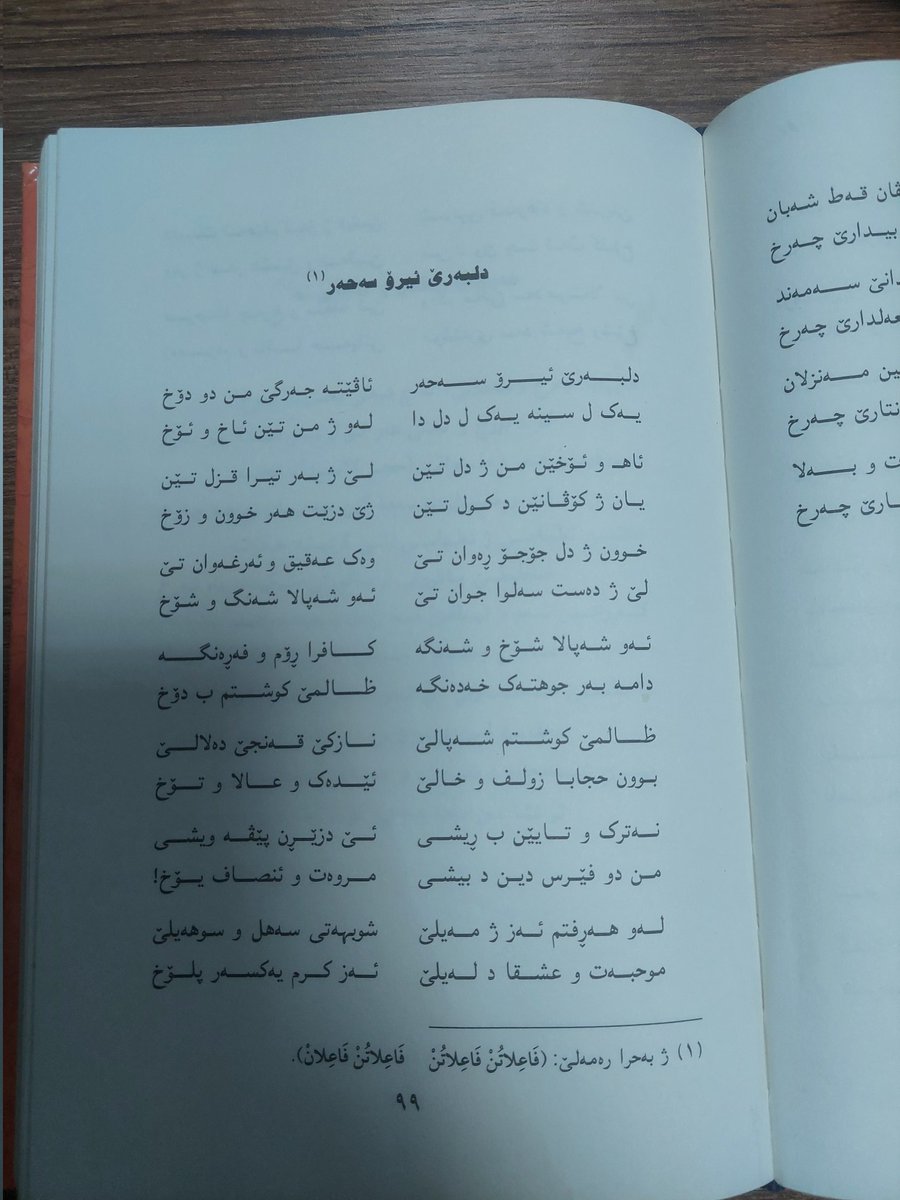 دلبەرێ ئیرۆ سەحەر(١)
دلبەرێ ئیرۆ سەحەر ئاڤێتە جەرگێ من دو دۆخ
یەک ل سینە یەک ل دل دا لەو ژ من تێن ئاخ و ئۆخ
ئاهـ و ئۆخێن من ژ دل تێن لێ ژ بەر تیرا قزل تێن
یان ژ کۆڤانێن د کول تێن ژێ دزێت هەر خوون و زۆخ
خوون ژ دل جۆجۆ ڕەوان تێ وەک عەقیق و ئەرغەوان تێ
لێ ژ دەست سەلوا جوان تێ ئەو شەپالا شەنگ و شۆخ
ئەو شەپالا شۆخ و شەنگە کافرا ڕۆم و فەڕەنگە
دامە بەر جوهتەک خەدەنگە ظالمێ کوشتم ب دۆخ
ظالمێ کوشتم شەپالێ نازکێ قەنجێ دەلالێ
بوون حجابا زولف و خالێ ئێدەک و عالا و تۆخ
نەترک و تایێن ب ڕیشی ئێ دزێڕن پێڤە ویشی
من دو فێرس دین د بیشی مروەت و ئنصاف یۆخ!
لەو هەڕفتم ئەز ژ مەیلێ شوبهەتی سەهل و سوهەیلێ
موحبەت و عشقا د لەیلێ ئەز کرم یەکسەر پلۆخ
(١) ژ بەحرا رەمەلێ: (فَاعِلاتُنْ فَاعِلاتُنْ فَاعِلاتُنْ فَاعِلانْ).
٩٩
ڤان قەط شەبان
بیدارێ چەرخ
دانێ سەمەند
عەلدارێ چەرخ
ین مەنزلان
نتارێ چەرخ
ت و بەلا
ارێ چەرخ